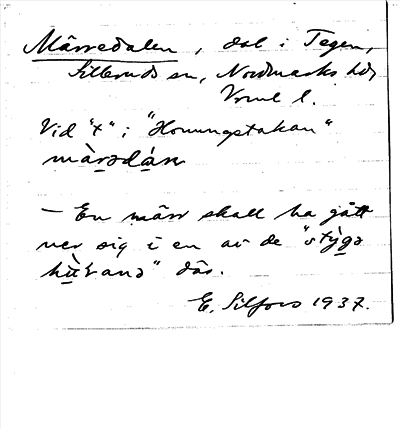 Märredalen, dal i Tegen,
Silleruds sn, Nordmarks hd,
Vrml l.
Vid "t" i "Honungstakan"
màrədá̱n
— En märr skall ha gått
ner sig i en av de "stỳgə
hù̱ɽanə" där.
E. Silfors 1937.